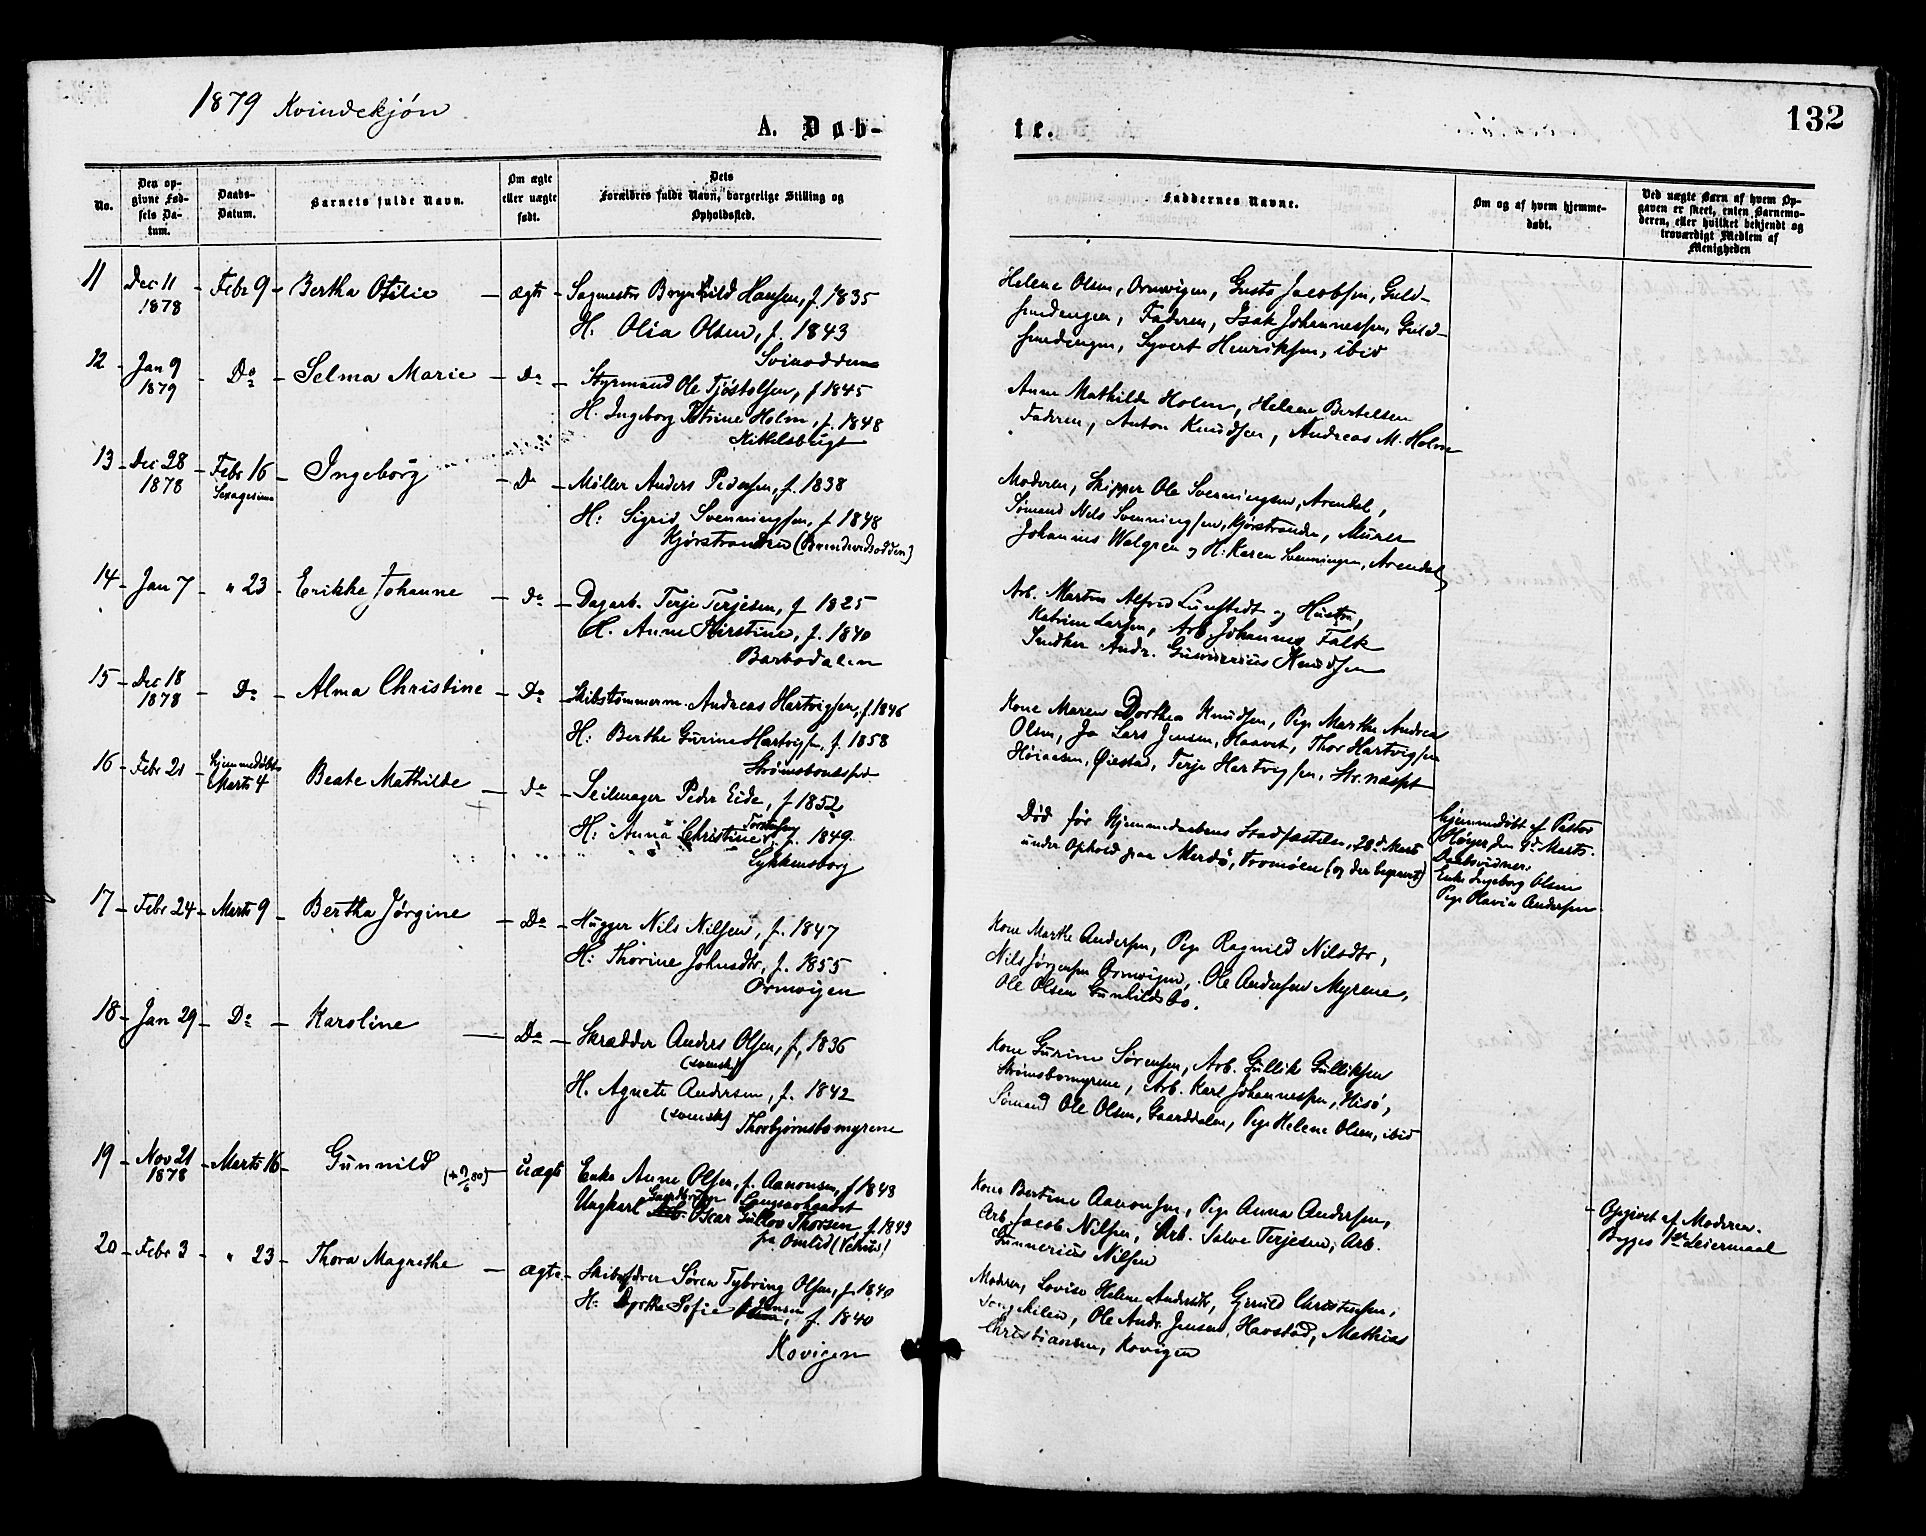 1879 Kvindekjøn
A. Døb-
te.
132
No.
Den op-
givne Fød-
sels Da-
tum.
Daabs-
Datum.
Barnets fulde Navn.
Om ægte
eller uægte
født.
Dets
Forældres fulde Navn, borgerlige Stilling og
Opholdssted.
Faddernes Navne.
Om og af hvem hjemme-
døbt.
Ved uægte Barn af hvem Op-
gaven er skeet, enten Barnemo-
deren, eller hvilket bekjendt og
troværdigt Medlem af
Menigheden
11 Dec 11 1878 Febr 9 Bertha Otilie ægte Sagmester Brynhild Hansen, f. 1835
H: Olia Olsen, f. 1843
Svinodden
Helene Olsen, Ormvigen, Gusta Jacobsen, Guld-
smedengen, Faderen, Isak Johannessen, Guld-
smedengen, Syvert Henriksen, ibid
12 Jan 9 1879 Do Selma Marie Do Styrmand Ole Tjøstolsen, f 1845
H. Ingeborg Petrine Holm, f. 1848
Kittelsbugt
Anne Mathilde Holm, Helene Bertelsen
Faderen, Anton Knudsen, Andreas M. Holm
13 Dec 28 1878 Febr 16 Sexagesima Ingeborg Do Møller Anders Pedersen, f. 1838
H: Sigrid Svenningsen, f 1848
Kjørstranden (Brendevidsodden)
Moderen, Skipper Ole Svenningsen, Arendal,
Sømand Nils Svenningsen, Kjørstranden, Murer
Johannes Walgren og H: Karen Svenningsen, Arendal
14 Jan 7 " 23 Erikke Johanne Do Dagarb. Terje Terjesen, f 1825
H. Anne Kirstine, f. 1840
Barbodalen
Arb. Martin Alfred Lunstedt og Hustru,
Katrine Larsen, Arb. Johannes Falk
Snedker Andr. Gunnerius Knudsen
15 Dec 18 1878 Do Alma Christine Do Skibstømmerm. Andreas Hartvigsen, f. 1846
H: Berthe Gurine Hartvigs., f. 1858
Strømsbouet
Kone Maren Dorthea Knudsen, Pige Marthe Andrea
Olsen, Jo Lars Jensen, Haavet, Thor Hartvigsen
Øiestad, Terje Hartvigsen, Str.næsset
16 Febr 21 Hjemmedøbt Marts 4 Beate Mathilde Do Seilmager Peder Eide, f 1852
H: Anna Christine Torstensen f. 1849.
Lykkensborg
Død før Hjemmedaabens Stadfæstelse, 28d Marts
under Ophold paa Merdø, Tromøen (og der begravet)
Hjemmedøbt af Pastor
Høyer, den 4d Marts.
Daabsvidner:
Enke Ingeborg Olsen
Pige Havia Andersen.
17 Febr 24 Marts 9 Bertha Jørgine Do Hugger Nils Nilsen, f. 1847
H: Thorine Johnsdtr, f. 1855
Ormvigen
Kone Marthe Andersen, Pige Ragnild Nilsdtr,
Nils Jørgensen Ormvigen, Ole Andersen Myrene,
Ole Olsen Gunhildsbo.
18 Jan 29 Do Karoline Do Skrædder Anders Olsen, f. 1836
(svensk)
H. Agnete Andersen, f. 1842
(svensk) Thorbjørnsbomyrene
Kone Gurine Sørensen, Arb. Gullik Gulliksen
Strømsbomyrene, Arb. Karl Johannessen, Hisø,
Sømand Ole Olsen, Gaarddalen, Pige Helene Olsen, ibid
19 Nov 21 1878 Marts 16 Gunnild uægte Enke Anne Olsen, f. Aanonsen, f 1848
Ungkarl Oscar Gullov Thorsen f. 1843
fra Omlid
Kone Bertine Aanonsen, Pige Anna Andersen,
Arb. Jacob Nilsen, Arb. Salve Terjesen, Arb.
Gunnerius Nilsen
Opgivet af Moderen.
Begges 1ste Leiermaal
20 Febr 3 " 23 Thora Magrethe ægte Skibsfører Søren Tybring Olsen, f 1840
H: Dorthe Sofie Jensen, f. 1840
Kovigen
Moderen, Lovise Helene Andersdtr, Gjeruld Christensen,
Songekilen, Ole Andr. Jensen, Havstad, Mathias
Christiansen, Kovigen